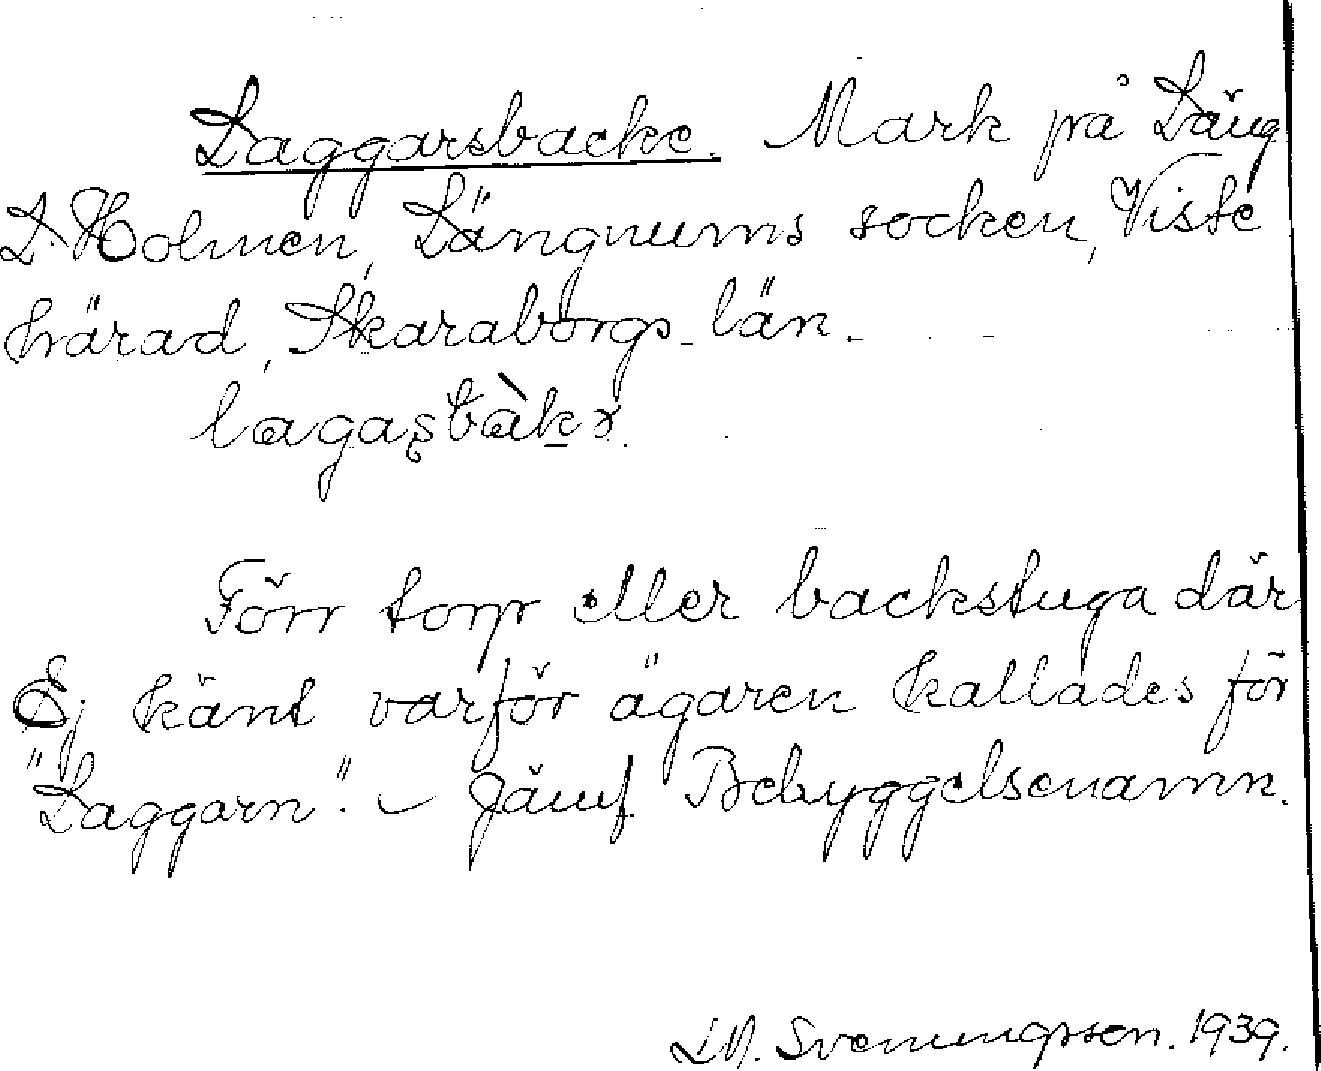 Laggarsbacke. Mark på Läng
L. Holmen, Längnums socken, Viste
härad, Skaraborgs län.
lagaşbàkə.
Förr torp eller backstuga där
Ej känt varför ägaren kallades för
"Laggarn". – Jämf. Bebyggelsenamn.
Svenungsson. 1939.